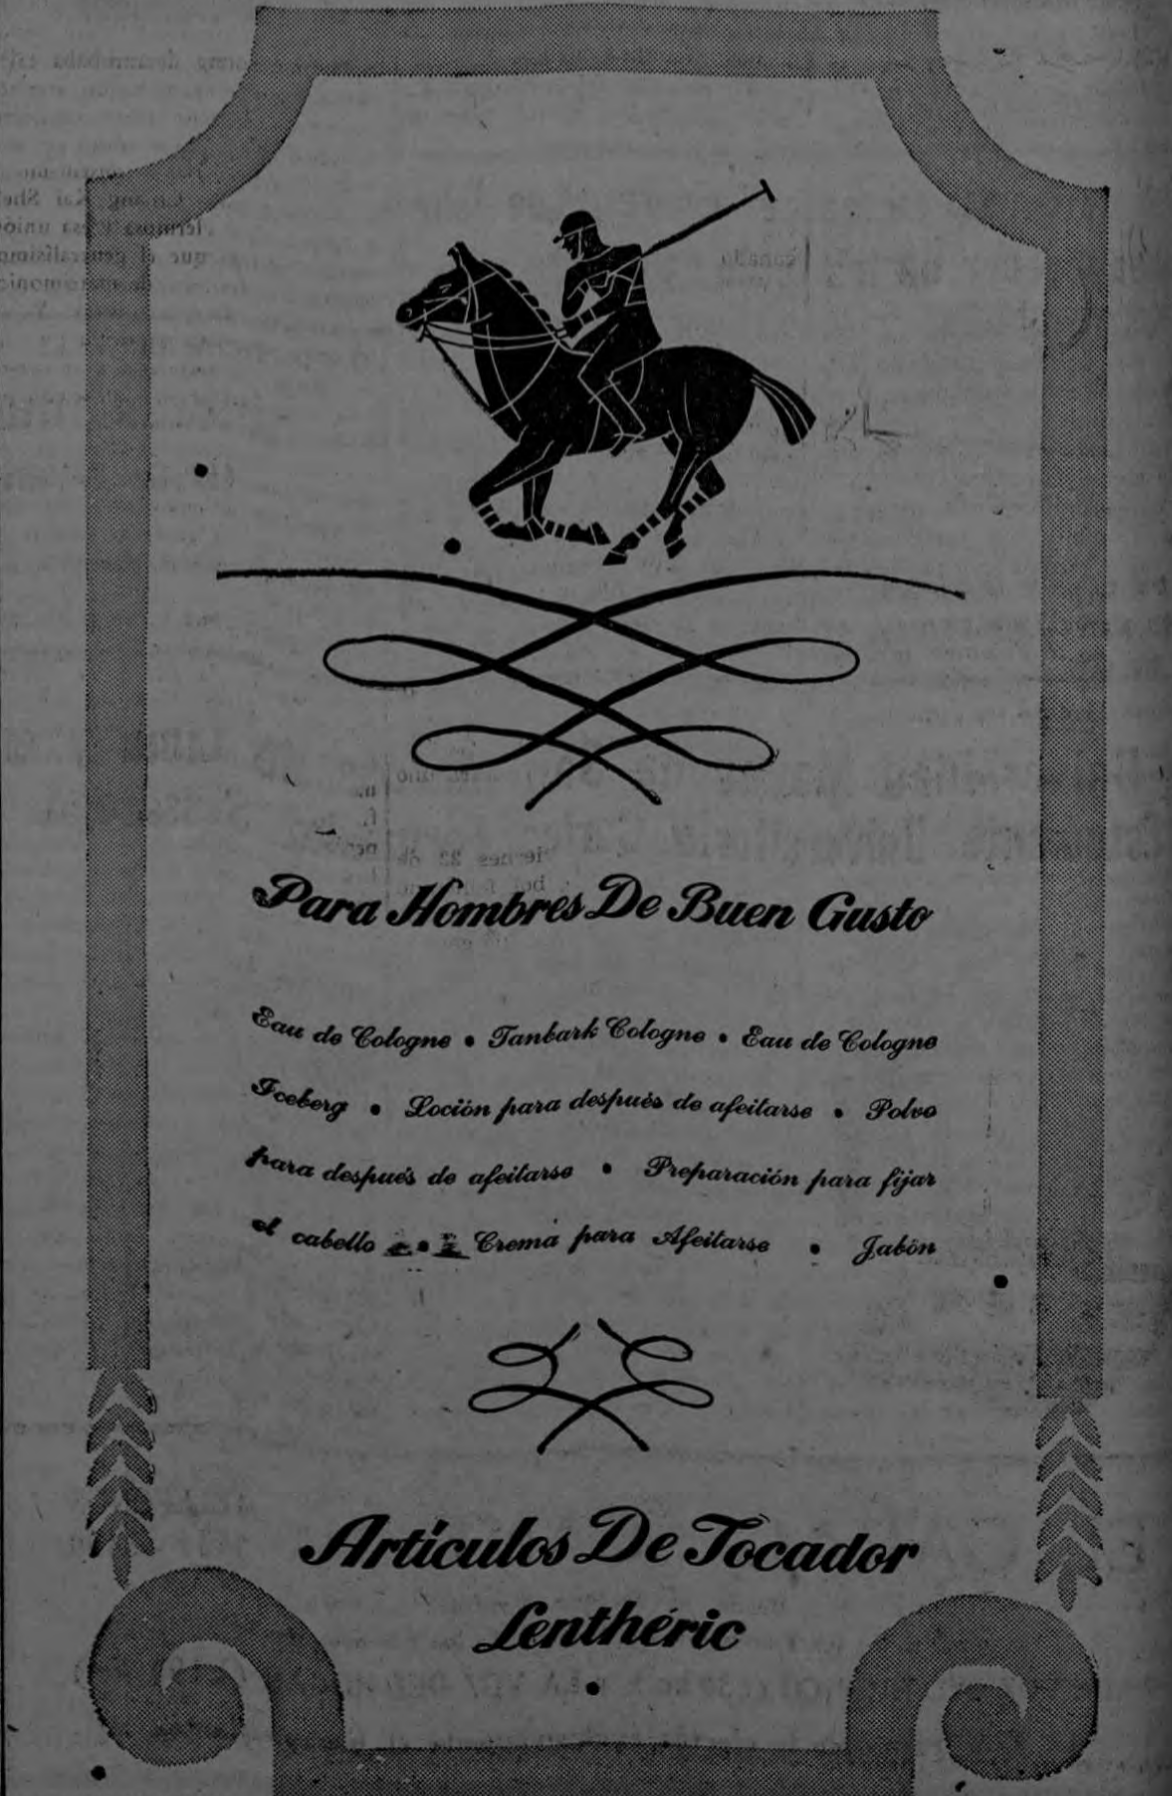 Para Hombres De Buen Gusto
Eau de Cologne • Tanbark Cologne • Eau de Cologne
Iceberg • Loción para después de afeitarse • Polvo
para después de afeitarse • Preparación para fijar
el cabello • Crema para Afeitarse • Jabón
Artículos De Tocador
Lenthéric